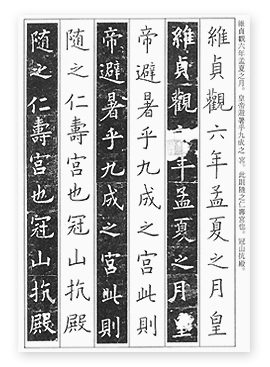 維貞觀六年孟夏之月。皇帝避暑乎九成之宮。此則隨之仁壽宮也。冠山抗殿。
維貞觀六年孟夏之月皇
維貞觀年孟夏之月皇
帝避暑乎九成之宮此則
帝避暑乎九成之宮此則
隨之仁壽宮也冠山抗殿
隨之仁壽宮也冠山抗殿